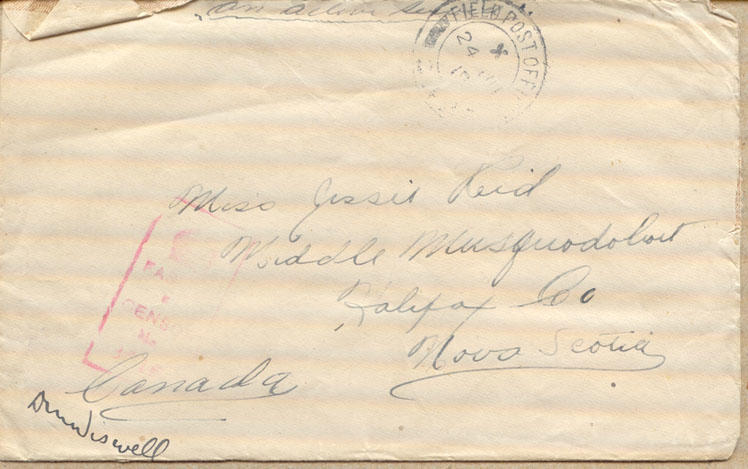 "on active
FIELD POST OFF
24
Miss Jessie Reid
Middle Musquodoboit
Halifax Co
Nova Scotia
Canada
PAS
CENS
No
Wiswell